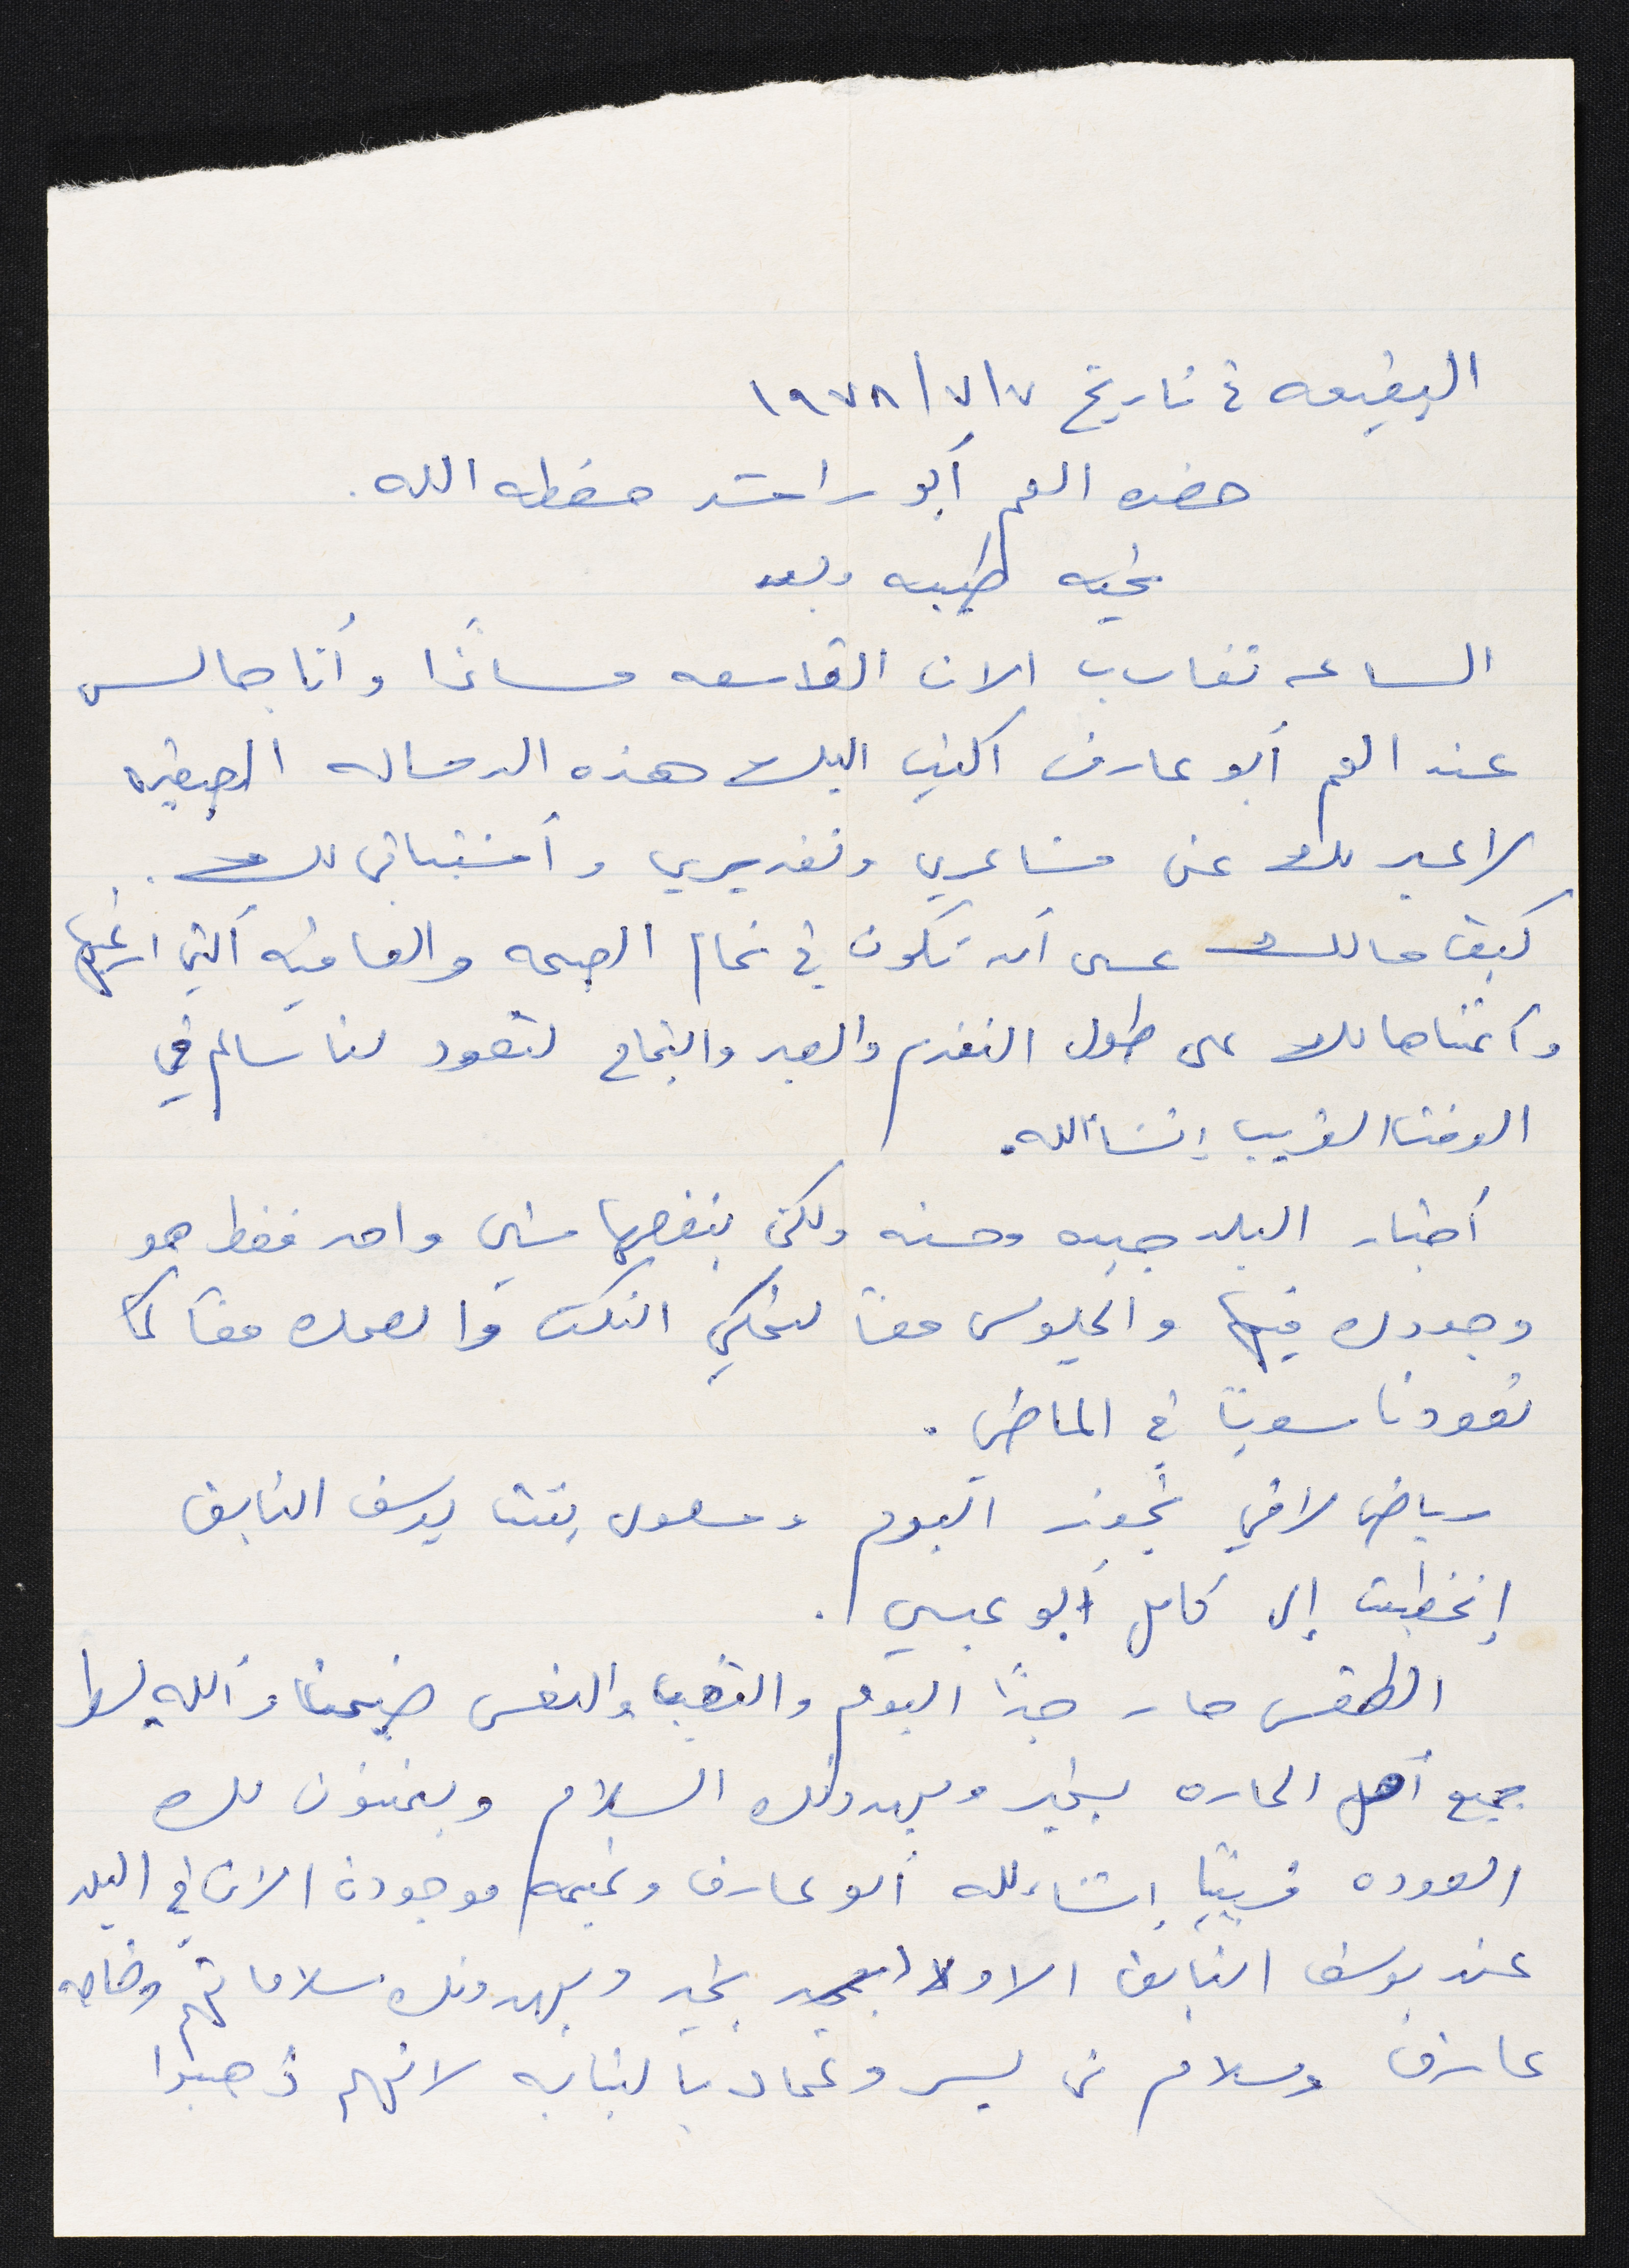 البقيعه في تاريخ ١٩٧٨/٧/٧
حضره العم أبو راشد حفظه الله.
تحيه طيبه وبعد
الساعه تقارب الان التاسعه مسائًا وأنا جالس
عند العم أبو عارف اكتب اليك هذه الرساله الصغيره
لاعبر لك عن مشاعري وتقديري وأشتياقي لك.
كيف حالك عسى أن تكون في تمام الصحه والعافيه ألتي ارغبها
وأتمناها لك على طول التقدم والصبر والنجاح لتعود لنا سالم في
الوقت القريب إنشاألله.
أخبار البلد جيده وحسنه ولكن ينقصها شيئ واحد فقط هو
وجودك فيها والجلوس معًا لنحكي النكت والضحك معًا كما
تعودنا سويًا في الماضي.
رياض تجوز اليوم بنت يوسف النايف
إنخطبت إلى كامل أبو عيسى.
الطقس حار جدًا اليوم والتعب والنفس
جميع أهل الحاره بخير ويهدونك السلام ويتمنون لك
العوده قريبًا إنشاءلله أبو عارف ونجيمه موجودة الان في البلد
عند يوسف النايف الاولاد بخير ويهدونك سلاماتهم وخاصه
عارف وسلام من يسر وعماد بالنيابه لانهم ذهبوا